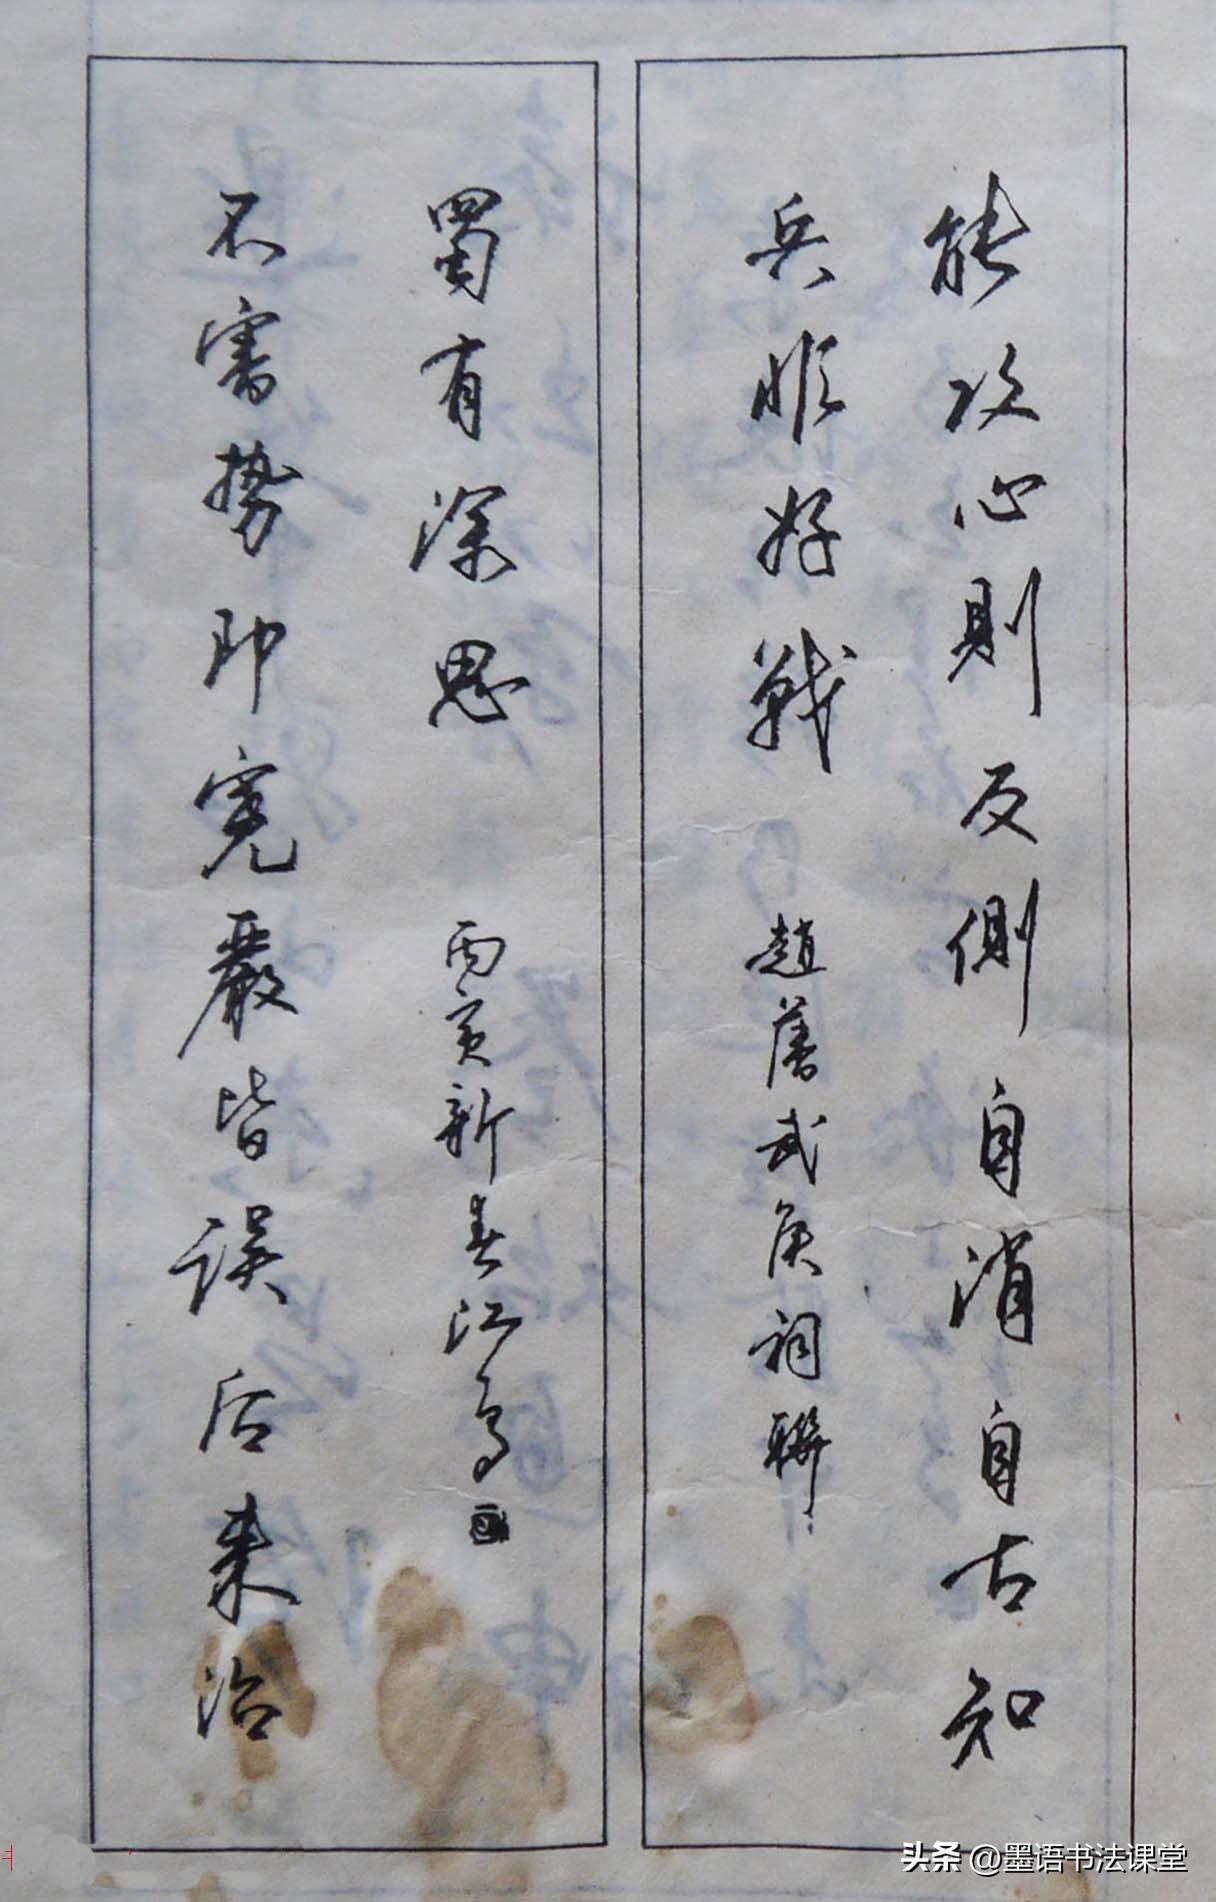 能攻心則反側自消自古知
兵非好戰 趙藩武侯祠聯
不審势即寬嚴皆误后来治
蜀有深思 丙寅新春江
头条 @墨语书法课堂